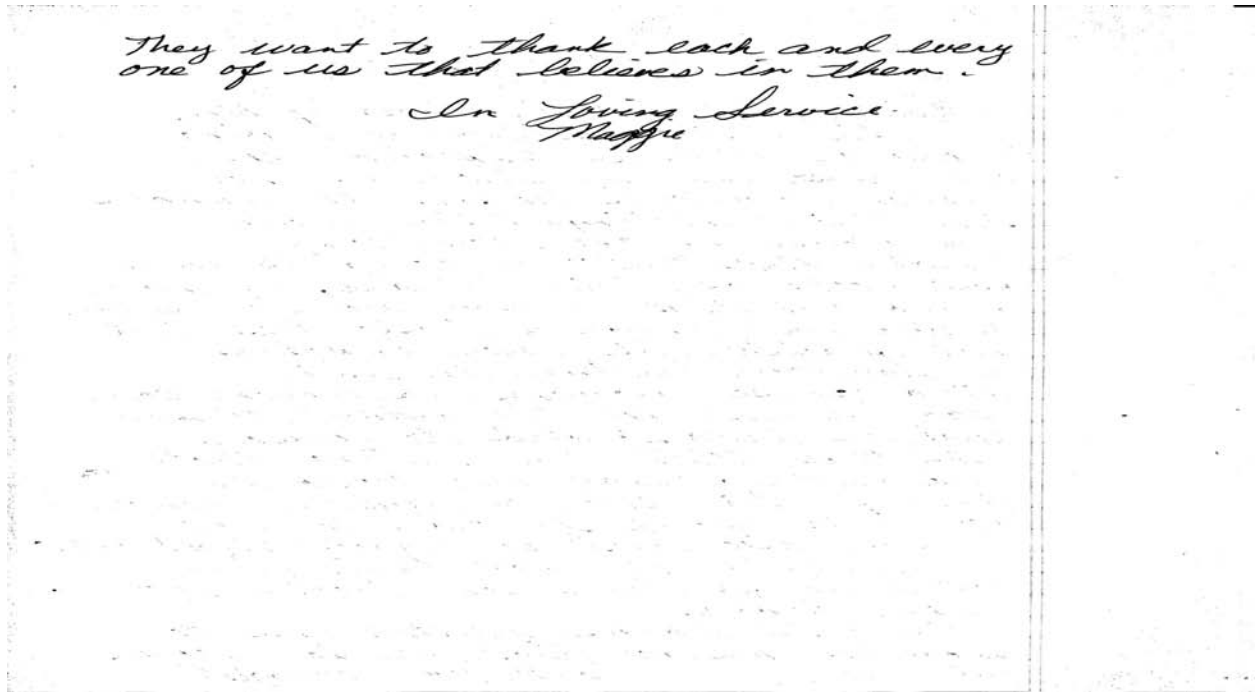 They want to thank each and every
one of us that believes in them.
In Loving Service.
Maggie